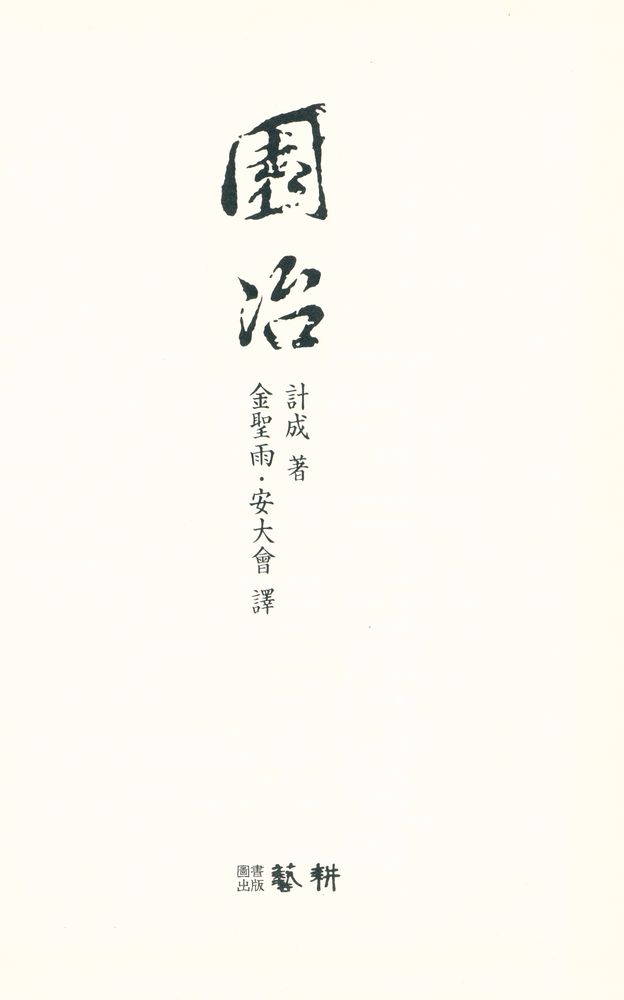 園冶
計成 著
金聖雨·安大會 譯
耕藝
圖書出版